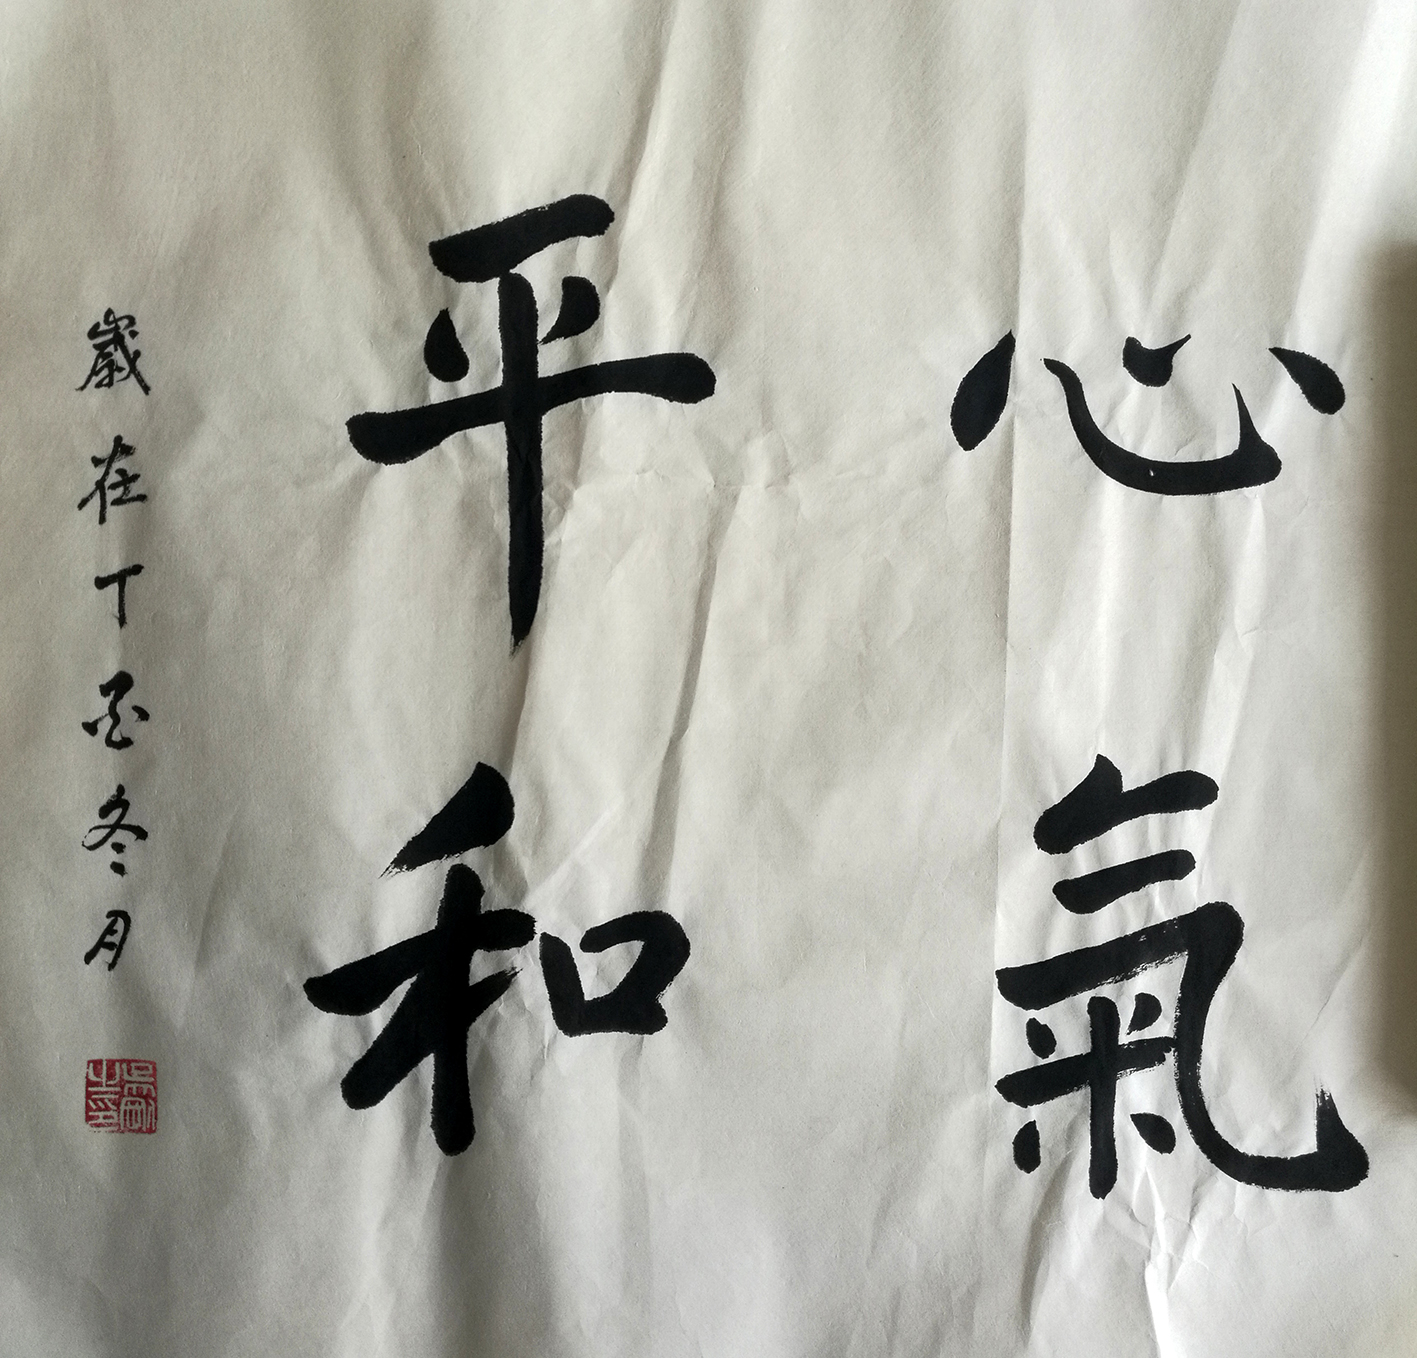 心氣
平和
歲在丁酉冬月